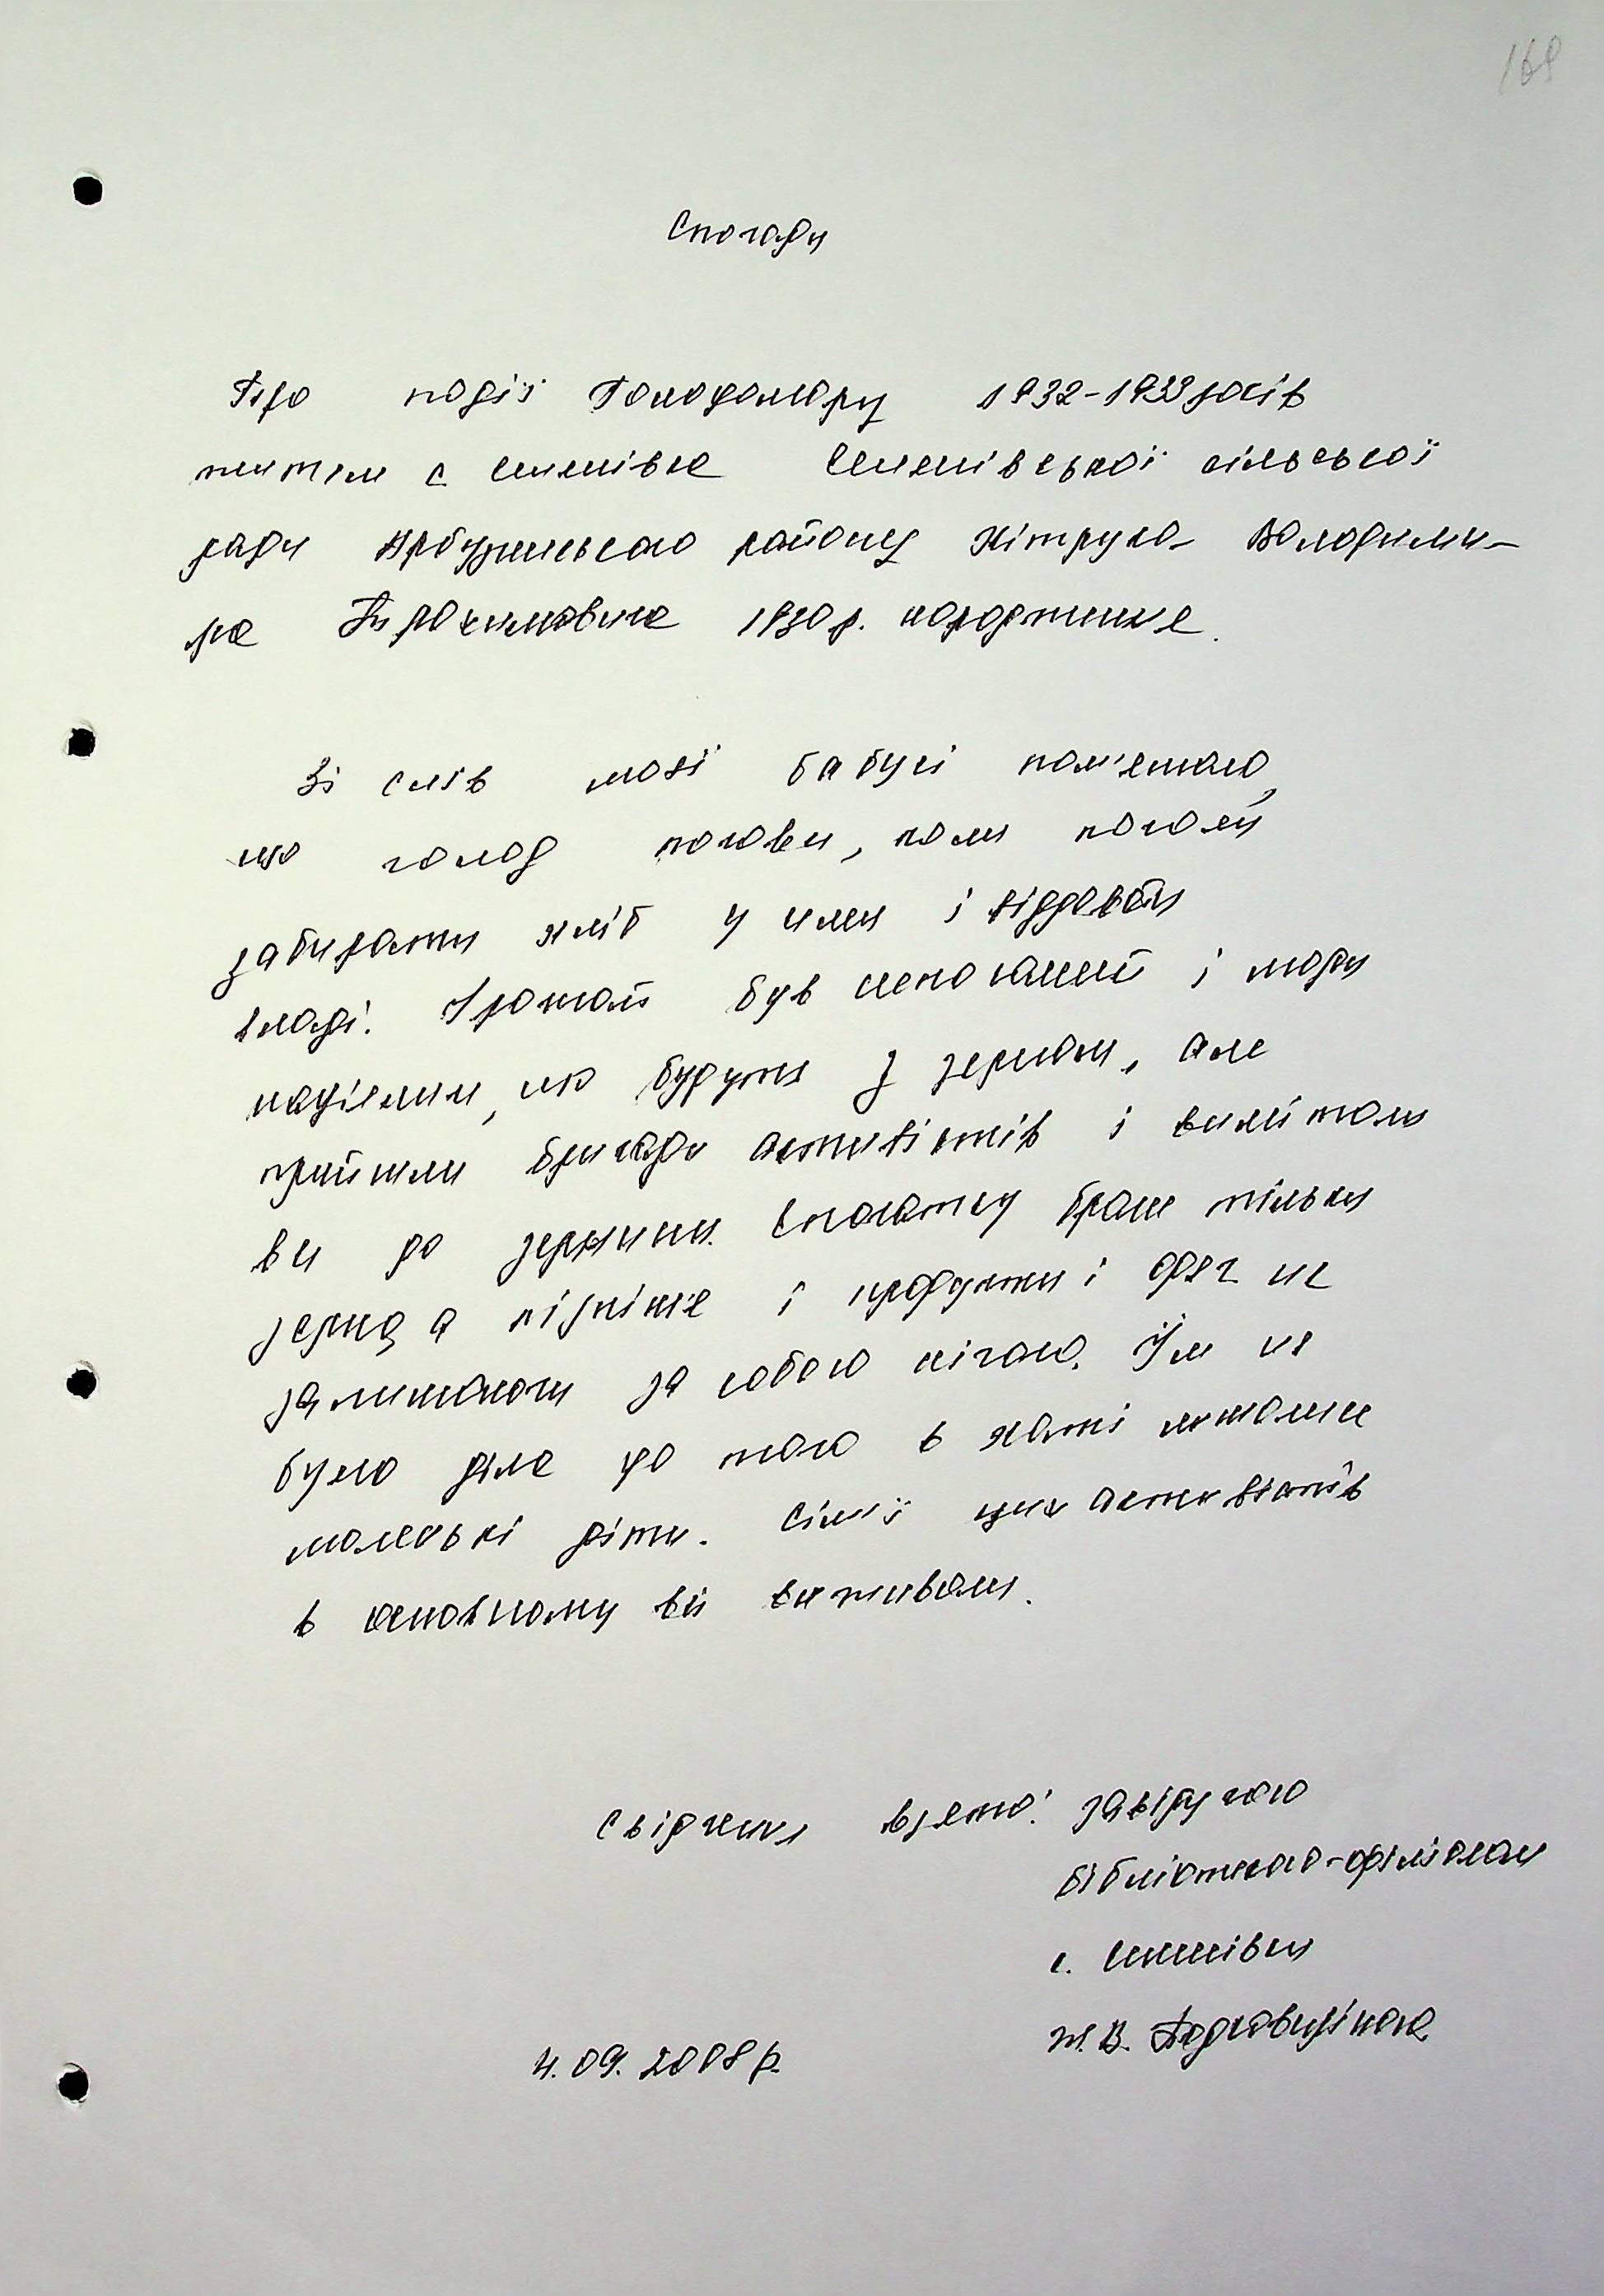 169
Спогади
Про події Голодомору 1932-1933 років
жителя с Семенівка Семенівської сільської
ради Арбузинського району Хітрука Володими-
ра Євдокимовича 1930 р. народження.
Зі слів моєї бабусі пам'ятаю,
що голод почався, коли почали
забирати хліб у сімей і віддавати
владі. Урожай був непоганий і люди
надіялись, що будуть з зерном, але
прийшли бригади активістів і вимітали
все до зернини. Спочатку брали тільки
зерно, а пізніше і продукти і одяг не
залишаючи за собою нічого. Їм не
було діла до того в хаті лежали
маленькі діти. Сім'ї цих активістів
в основному всі виживали.
Свідчення взято: завідуючою
бібліотекою-філіалом
с. Семенівка
Ж.В.
4.09.2008 р.